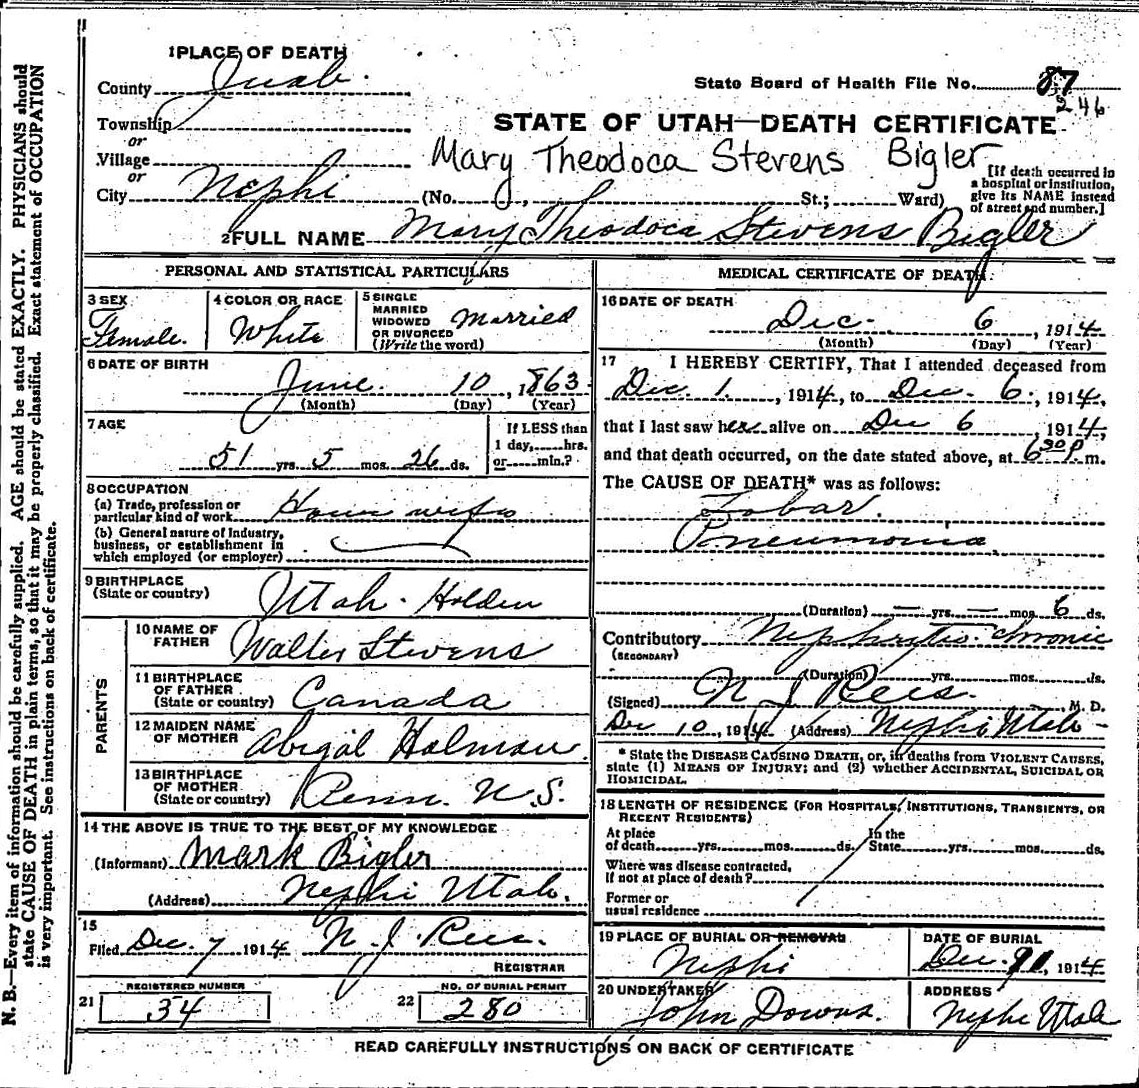 N. B.—Every item of information should be carefully supplied. AGE should be stated EXACTLY. PHYSICIANS should
state CAUSE OF DEATH in plain terms, so that it may be properly classified. Exact statement of OCCUPATION
is very important. See instructions on back of certificate.
1 PLACE OF DEATH
County Juab.
State Board of Health File No. 87
246
Township
or
STATE OF UTAH—DEATH CERTIFICATE
Village
or
Mary Theodoca Stevens Bigler
City Nephi (No. , St.; Ward)
[If death occurred in
a hospital or institution,
give its NAME instead
of street and number.]
2 FULL NAME Mary Theodoca Stevens Bigler
PERSONAL AND STATISTICAL PARTICULARS
3 SEX
Female.
4 COLOR OR RACE
White
5 SINGLE
MARRIED
WIDOWED
OR DIVORCED
(Write the word)
Married
6 DATE OF BIRTH
June. 10, 1863
(Month) (Day) (Year)
7 AGE
51 yrs. 5 mos. 26 ds.
If LESS than
1 day, hrs.
or min.?
8 OCCUPATION
(a) Trade, profession or
particular kind of work House wife
(b) General nature of Industry,
business, or establishment in
which employed (or employer)
9 BIRTHPLACE
(State or country) Utah - Holden
PARENTS
10 NAME OF
FATHER Walter Stevens
11 BIRTHPLACE
OF FATHER
(State or country) Canada
12 MAIDEN NAME
OF MOTHER Abigal Holman
13 BIRTHPLACE
OF MOTHER
(State or country) Penn. U.S.
14 THE ABOVE IS TRUE TO THE BEST OF MY KNOWLEDGE
(Informant) Mark Bigler
(Address) Nephi Utah.
15
Filed Dec. 7, 1914 N. J. Rees.
REGISTRAR
21 REGISTERED NUMBER
34
22 NO. OF BURIAL PERMIT
280
MEDICAL CERTIFICATE OF DEATH
16 DATE OF DEATH
Dec. 6, 1914
(Month) (Day) (Year)
17 I HEREBY CERTIFY, That I attended deceased from
Dec 1., 1914, to Dec. 6., 1914,
that I last saw her alive on Dec 6, 1914,
and that death occurred, on the date stated above, at 6 30 P. m.
The CAUSE OF DEATH* was as follows:
Lobar.
Pneumonia.
(Duration) — yrs. — mos. 6 ds.
Contributory Nephrytis-chronic
(SECONDARY)
(Duration) yrs. mos. ds.
(Signed) N J Rees. M. D.
Dec 10, 1914 (Address) Nephi Utah
* State the DISEASE CAUSING DEATH, or, in deaths from VIOLENT CAUSES,
state (1) MEANS OF INJURY; and (2) whether ACCIDENTAL, SUICIDAL OR
HOMICIDAL.
18 LENGTH OF RESIDENCE (FOR HOSPITALS, INSTITUTIONS, TRANSIENTS, OR
RECENT RESIDENTS)
At place
of death yrs. mos. ds.
In the
State yrs. mos. ds.
Where was disease contracted,
If not at place of death?
Former or
usual residence
19 PLACE OF BURIAL OR REMOVAL
Nephi
DATE OF BURIAL
Dec. , 1914
20 UNDERTAKER
John Downs.
ADDRESS
Nephi Utah
READ CAREFULLY INSTRUCTIONS ON BACK OF CERTIFICATE